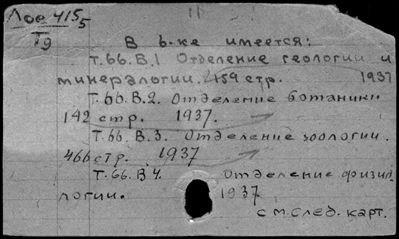 Лое 415
5
Т9
В б-ке имеется:
Т.66.В.1 Отделение геологии и
минералогии. 459 стр. 1937
Т.66.В.2. Отделение ботаники
142 стр. 1937.
Т.66.В.3. Отделение зоологии.
466 стр. 1937
Т.66.В 4. Отделение физио
логии. 1937
см.след. карт.